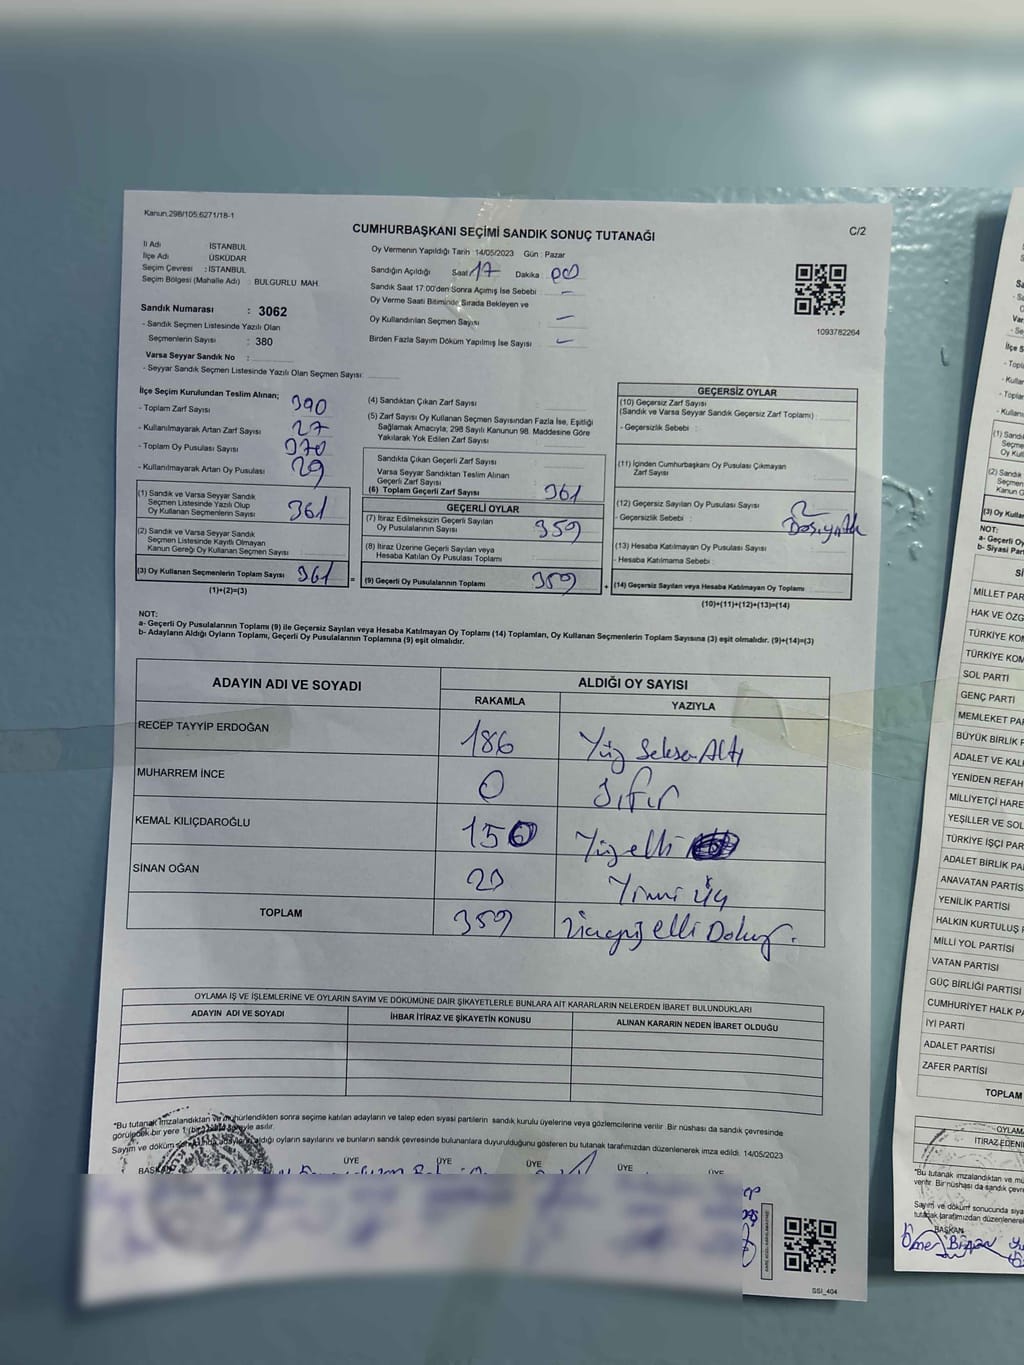 Kanun.298/105;6271/18-1
CUMHURBAŞKANI SEÇİMİ SANDIK SONUÇ TUTANAĞI
C/2
İl Adı İSTANBUL
İlçe Adı ÜSKÜDAR
Seçim Çevresi : İSTANBUL
Seçim Bölgesi (Mahalle Adı) : BULGURLU MAH.
Oy Vermenin Yapıldığı Tarih : 14/05/2023 Gün : Pazar
Sandığın Açıldığı Saat 17 Dakika : 00
Sandık Saat 17.00'den Sonra Açımış İse Sebebi : -
Oy Verme Saati Bitiminde Sırada Bekleyen ve
Oy Kullandırılan Seçmen Sayısı -
Birden Fazla Sayım Döküm Yapılmış İse Sayısı -
1093782264
Sandık Numarası : 3062
- Sandık Seçmen Listesinde Yazılı Olan
Seçmenlerin Sayısı : 380
Varsa Seyyar Sandık No :
- Seyyar Sandık Seçmen Listesinde Yazılı Olan Seçmen Sayısı:
İlçe Seçim Kurulundan Teslim Alınan;
- Toplam Zarf Sayısı 390
- Kullanılmayarak Artan Zarf Sayısı 27
- Toplam Oy Pusulası Sayısı 370
- Kullanılmayarak Artan Oy Pusulası 29
(1) Sandık ve Varsa Seyyar Sandık
Seçmen Listesinde Yazılı Olup
Oy Kullanan Seçmenlerin Sayısı 361
(2) Sandık ve Varsa Seyyar Sandık
Seçmen Listesinde Kayıtlı Olmayan
Kanun Gereği Oy Kullanan Seçmen Sayısı
(3) Oy Kullanan Seçmenlerin Toplam Sayısı 361
(1)+(2)=(3)
(4) Sandıktan Çıkan Zarf Sayısı
(5) Zarf Sayısı Oy Kullanan Seçmen Sayısından Fazla İse, Eşitliği
Sağlamak Amacıyla; 298 Sayılı Kanunun 98. Maddesine Göre
Yakılarak Yok Edilen Zarf Sayısı
Sandıkta Çıkan Geçerli Zarf Sayısı
Varsa Seyyar Sandıktan Teslim Alınan
Geçerli Zarf Sayısı
(6) Toplam Geçerli Zarf Sayısı 361
GEÇERLİ OYLAR
(7) İtiraz Edilmeksizin Geçerli Sayılan
Oy Pusulalarının Sayısı 359
(8) İtiraz Üzerine Geçerli Sayılan veya
Hesaba Katılan Oy Pusulası Toplamı
= (9) Geçerli Oy Pusulalarının Toplamı 359
GEÇERSİZ OYLAR
(10) Geçersiz Zarf Sayısı
(Sandık ve Varsa Seyyar Sandık Geçersiz Zarf Toplamı)
- Geçersizlik Sebebi :
(11) İçinden Cumhurbaşkanı Oy Pusulası Çıkmayan
Zarf Sayısı
(12) Geçersiz Sayılan Oy Pusulası Sayısı 2
- Geçersizlik Sebebi :
(13) Hesaba Katılmayan Oy Pusulası Sayısı
- Hesaba Katılmama Sebebi :
+ (14) Geçersiz Sayılan veya Hesaba Katılmayan Oy Toplamı
(10)+(11)+(12)+(13)=(14)
NOT:
a- Geçerli Oy Pusulalarının Toplamı (9) ile Geçersiz Sayılan veya Hesaba Katılmayan Oy Toplamı (14) Toplamları, Oy Kullanan Seçmenlerin Toplam Sayısına (3) eşit olmalıdır. (9)+(14)=(3)
b- Adayların Aldığı Oyların Toplamı, Geçerli Oy Pusulalarının Toplamına (9) eşit olmalıdır.
ADAYIN ADI VE SOYADI
ALDIĞI OY SAYISI
RAKAMLA YAZIYLA
RECEP TAYYİP ERDOĞAN 186 Yüz Seksen Altı
MUHARREM İNCE 0 Sıfır
KEMAL KILIÇDAROĞLU 150 Yüz elli
SİNAN OĞAN 23 Yirmi üç
TOPLAM 359 elli Dokuz.
OYLAMA İŞ VE İŞLEMLERİNE VE OYLARIN SAYIM VE DÖKÜMÜNE DAİR ŞİKAYETLERLE BUNLARA AİT KARARLARIN NELERDEN İBARET BULUNDUKLARI
ADAYIN ADI VE SOYADI İHBAR İTİRAZ VE ŞİKAYETİN KONUSU ALINAN KARARIN NEDEN İBARET OLDUĞU
*Bu tutanak imzalandıktan ve mühürlendikten sonra seçime katılan adayların ve talep eden siyasi partilerin sandık kurulu üyelerine veya gözlemcilerine verilir. Bir nüshası da sandık çevresinde
görülecek bir yere 1 asılır.
Sayım ve döküm aldığı oyların sayılarını ve bunların sandık çevresinde bulunanlara duyurulduğunu gösteren bu tutanak tarafımızdan düzenlenerek imza edildi. 14/05/2023
BAŞKAN ÜYE ÜYE ÜYE ÜYE ÜYE
SSI_404
NOT:
a- Geçerli Oy
b- Siyasi Par
MİLLET PAR
HAK VE ÖZG
TÜRKİYE KOM
TÜRKİYE KOM
SOL PARTİ
GENÇ PARTİ
MEMLEKET PAR
BÜYÜK BİRLİK P
ADALET VE KAL
YENİDEN REFAH
MİLLİYETÇİ HARE
YEŞİLLER VE SOL
TÜRKİYE İŞÇİ PAR
ADALET BİRLİK PA
ANAVATAN PARTİS
YENİLİK PARTİSİ
HALKIN KURTULUŞ P
MİLLİ YOL PARTİSİ
VATAN PARTİSİ
GÜÇ BİRLİĞİ PARTİSİ
CUMHURİYET HALK PA
İYİ PARTİ
ADALET PARTİSİ
ZAFER PARTİSİ
TOPLAM
OYLAMA
İTİRAZ EDENİ
*Bu tutanak imzalandıktan ve mü
verilir. Bir nüshası da sandık çevre
Sayım ve döküm sonucunda siya
tutanak tarafımızdan düzenlenerek
BAŞKAN